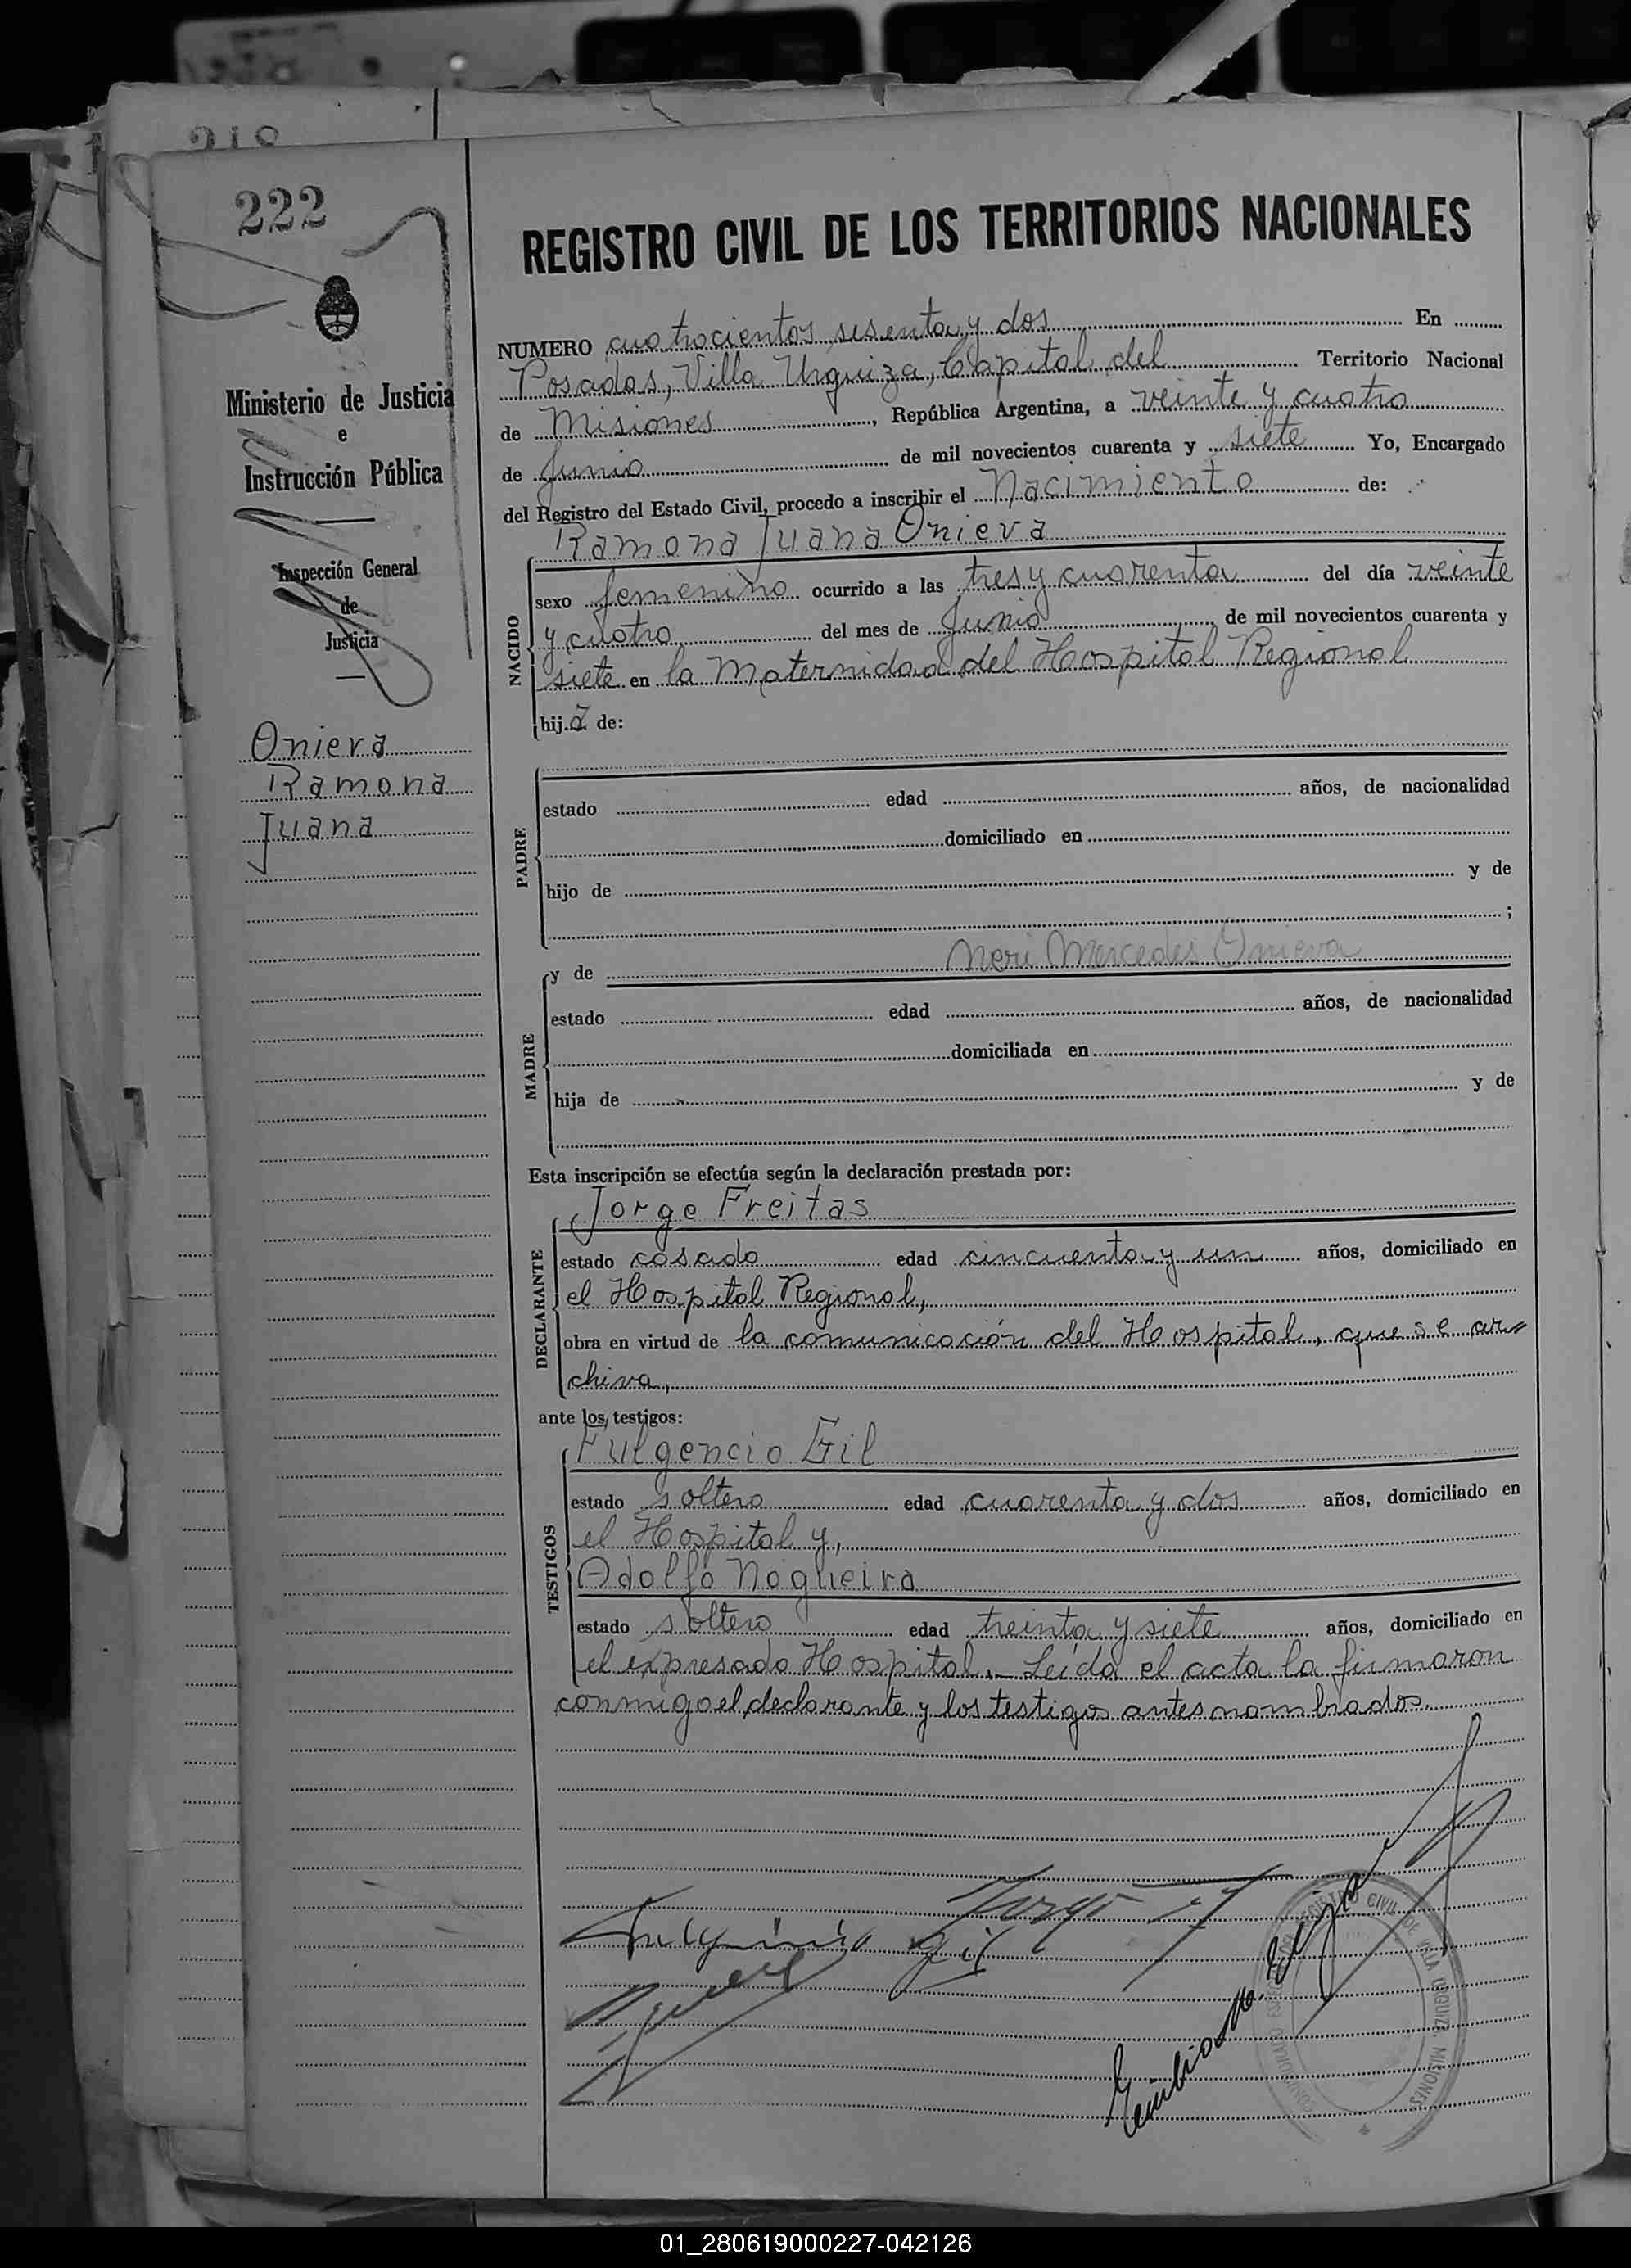 218
222
REGISTRO CIVIL DE LOS TERRITORIOS NACIONALES
Ministerio de Justicia
e
Instrucción Pública
Inspección General
de
Justicia
Onieva
Ramona
Juana
NUMERO cuatrocientos sesenta y dos En
Posadas, Villa Urquiza, Capital del Territorio Nacional
de Misiones, República Argentina, a veinte y cuatro
de Junio de mil novecientos cuarenta y siete Yo, Encargado
del Registro del Estado Civil, procedo a inscribir el Nacimiento de:
Ramona Juana Onieva
NACIDO
sexo femenino ocurrido a las tres y cuarenta del día veinte
y cuatro del mes de Junio de mil novecientos cuarenta y
siete en la Maternidad del Hospital Regional
hija de:
PADRE
estado edad años, de nacionalidad
domiciliado en
hijo de y de
;
MADRE
y de Neri Mercedes Onieva
estado edad años, de nacionalidad
domiciliada en
hija de y de
Esta inscripción se efectúa según la declaración prestada por:
Jorge Freitas
DECLARANTE
estado casado edad cincuenta y un años, domiciliado en
el Hospital Regional,
obra en virtud de la comunicación del Hospital, que se ar-
chiva,
ante los testigos:
Fulgencio Gil
TESTIGOS
estado soltero edad cuarenta y dos años, domiciliado en
el Hospital y,
Adolfo Nogueira
estado soltero edad treinta y siete años, domiciliado en
el expresado Hospital.- Leída el acta la firmaron
conmigo el declarante y los testigos antes nombrados.
Jorge F
Gil
REGISTRO CIVIL DE VILLA URQUIZA MISIONES
01_280619000227-042126